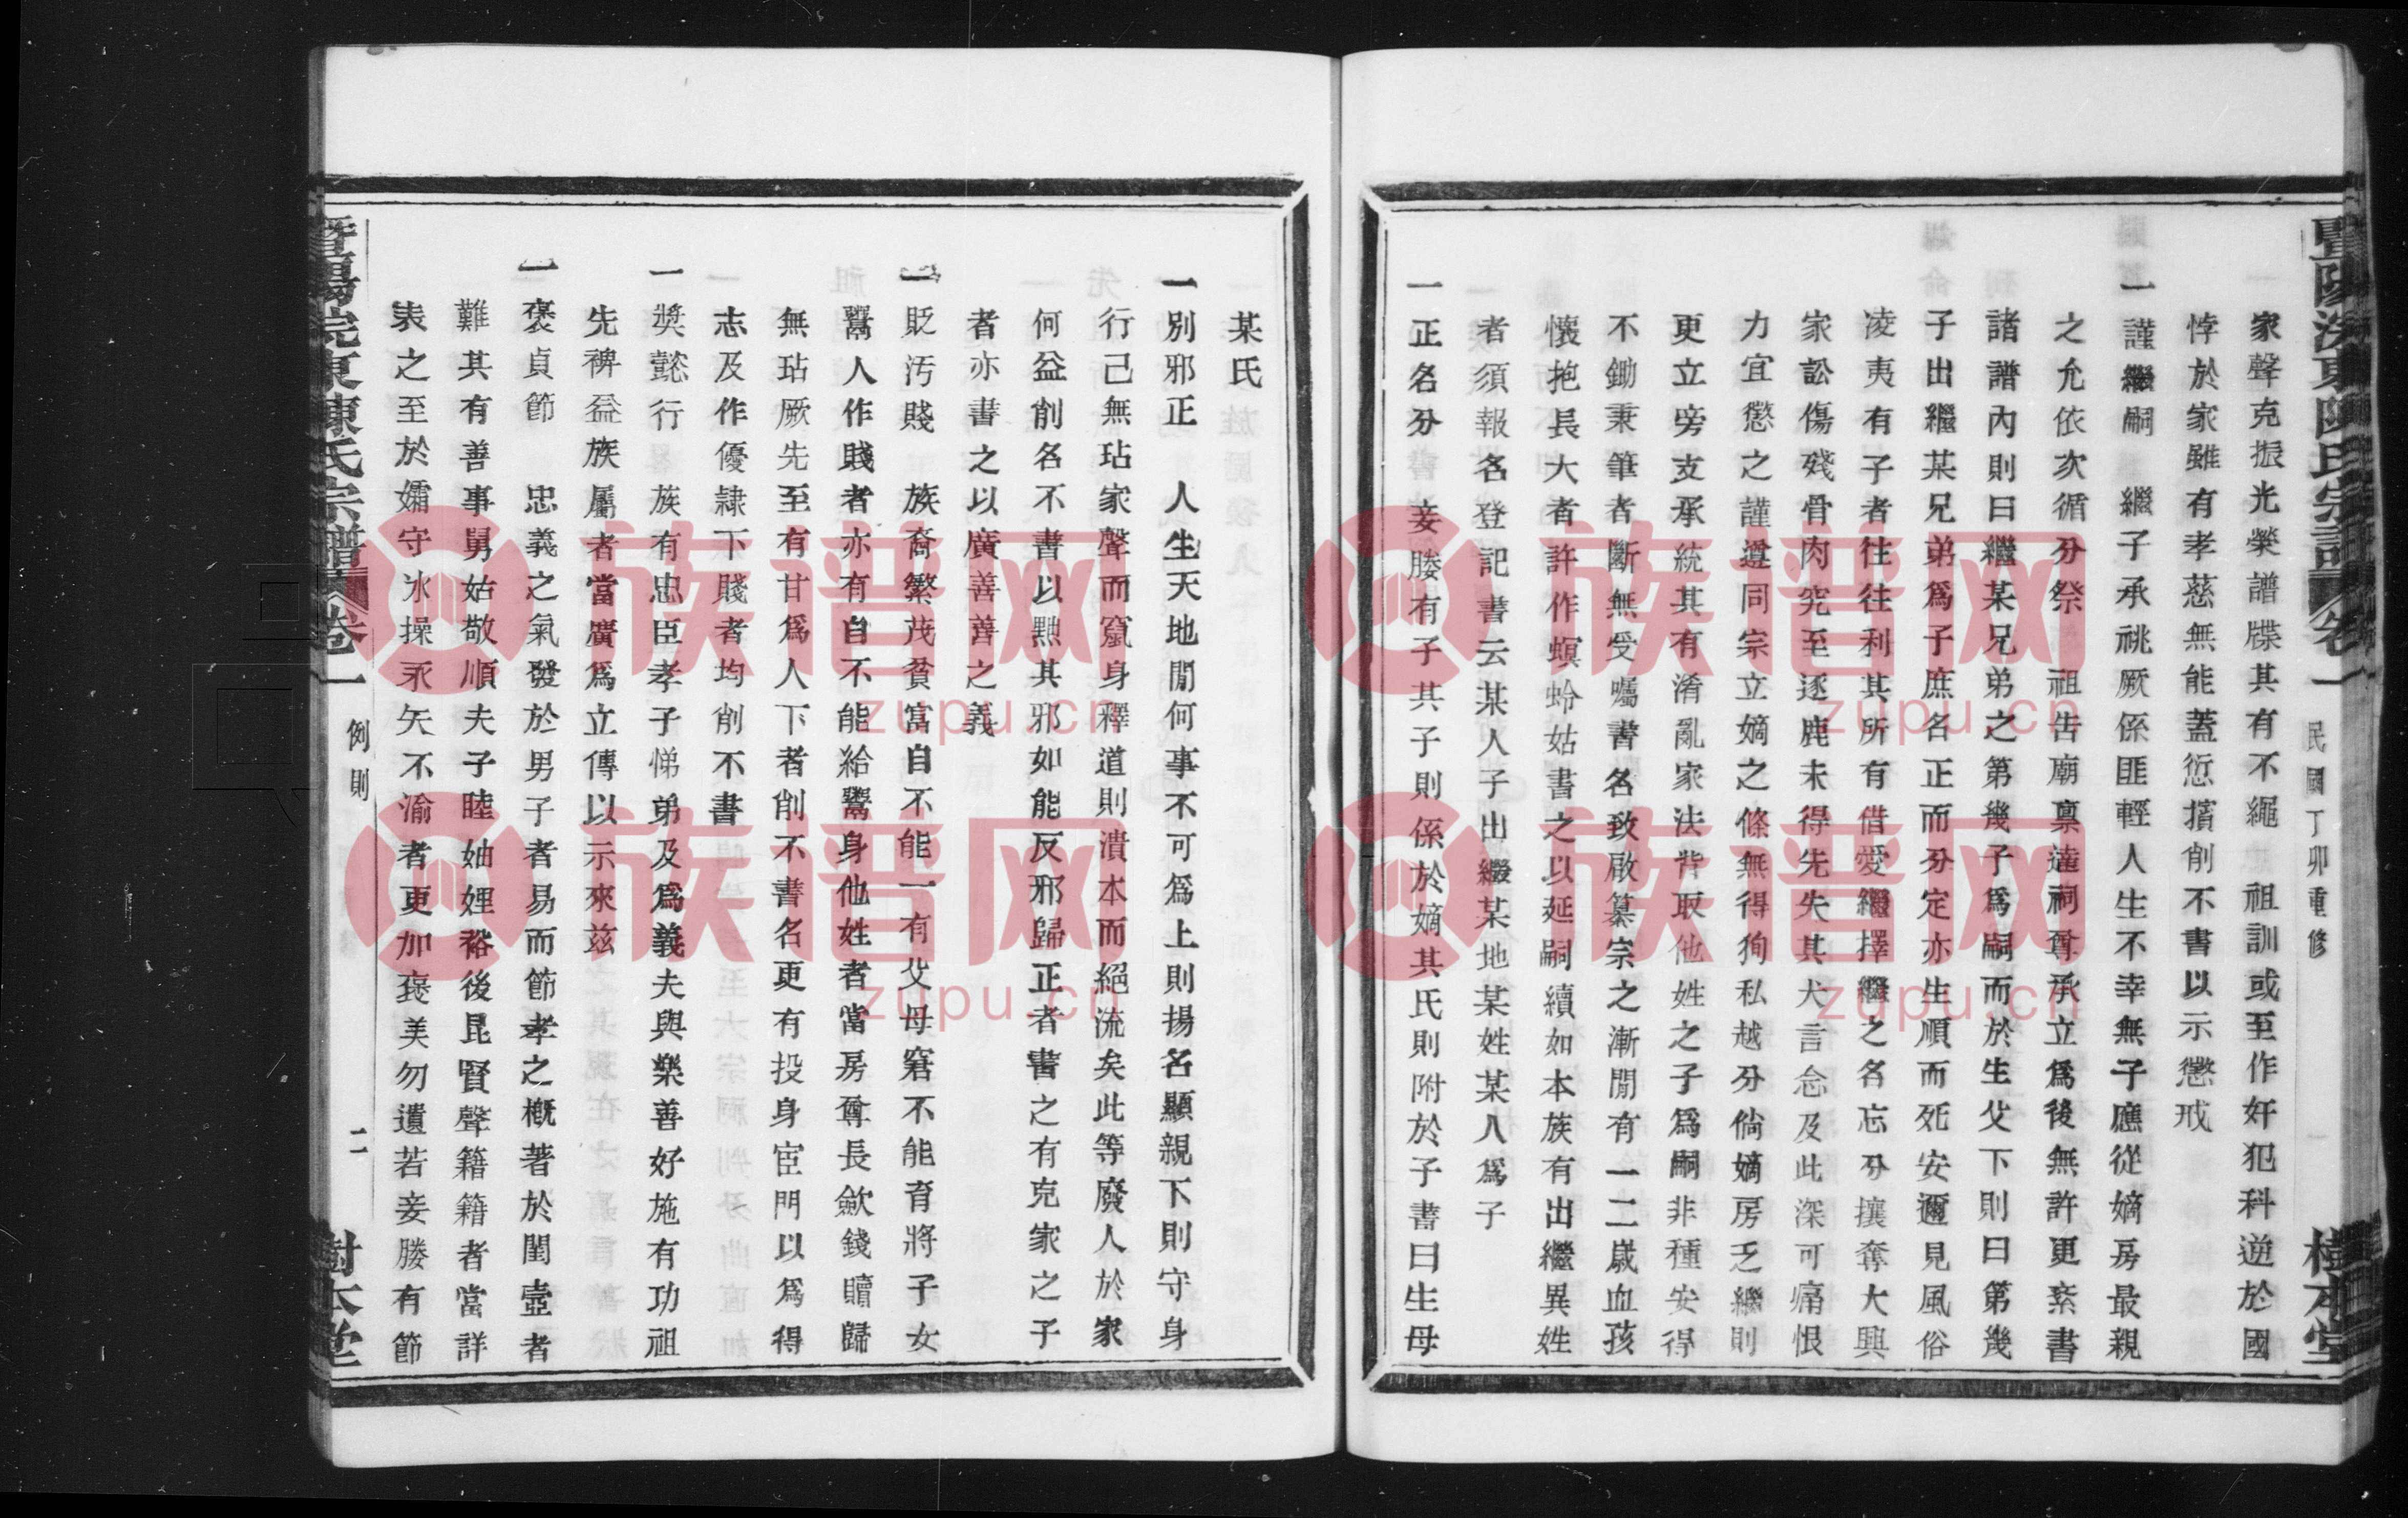 暨陽浣東陳氏宗譜 卷一 民國丁卯重修 樹本堂
家聲克振光榮譜牒其有不繩 祖訓或至作奸犯科逆於國
悖於家雖有孝慈無能蓋愆擯削不書以示懲戒
一謹繼嗣 繼子承祧厥係匪輕人生不幸無子應從嫡房最親
之允依次循分祭 祖告廟稟達祠尊承立為後無許更紊書
諸譜內則曰繼某兄弟之第幾子爲嗣而於生父下則曰第幾
子出繼某兄弟爲子庶名正而分定亦生順而死安邇見風俗
凌夷有子者往往利其所有借愛繼擇繼之名忘分攘奪大興
家訟傷殘骨肉究至逐鹿未得先失其犬言念及此深可痛恨
力宜懲之謹遵同宗立嫡之條無得狥私越分倘嫡房乏繼則
更立旁支承統其有淆亂家法背取他姓之子爲嗣非種安得
不鋤秉筆者斷無受囑書名致啟纂宗之漸閒有一二歲血孩
懷抱長大者許作螟蛉姑書之以延嗣續如本族有出繼異姓
者須報名登記書云某人子出繼某地某姓某人爲子
一正名分 妾媵有子其子則係於嫡其氏則附於子書曰生母
某氏
一別邪正 人生天地閒何事不可爲上則揚名顯親下則守身
行己無玷家聲而竄身釋道則潰本而絕流矣此等廢人於家
何益削名不書以黜其邪如能反邪歸正者書之有克家之子
者亦書之以廣善善之義
一貶汚賤 族裔繁茂貧富自不能一有父母窘不能育將子女
鬻人作賤者亦有自不能給鬻身他姓者當房尊長歛錢贖歸
無玷厥先至有甘爲人下者削不書名更有投身宦門以爲得
志及作優隸下賤者均削不書
一獎懿行 族有忠臣孝子悌弟及爲義夫與樂善好施有功祖
先裨益族屬者當廣爲立傳以示來兹
一褒貞節 忠義之氣發於男子者易而節孝之概著於閨壼者
難其有善事舅姑敬順夫子睦妯娌裕後昆賢聲籍籍者當詳
表之至於孀守氷操永矢不渝者更加褒美勿遺若妾媵有節
暨陽浣東陳氏宗譜 卷一 例則 二 樹本堂
族谱网
zupu.cn
族谱网
zupu.cn
族谱网
zupu.cn
族谱网
zupu.cn